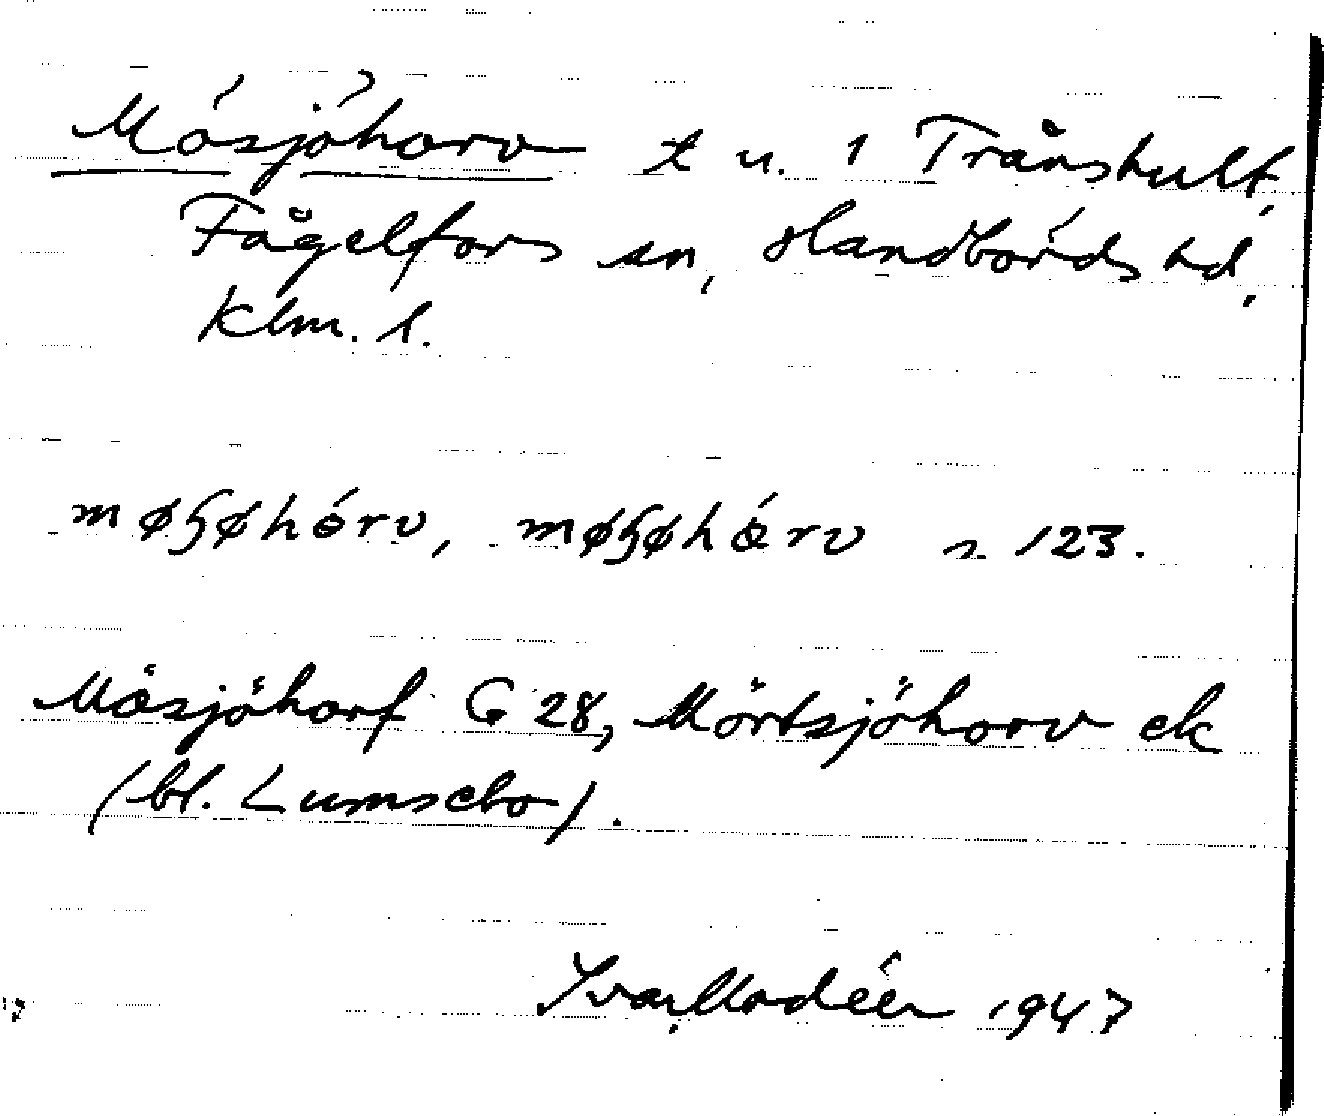 Mösjöhorv t u. 1 Trånshult,
Fågelfors sn, Handbörds hd,
Klm. l.
møɧøhórv, møɧøhǿrv n 123.
Mösjöhorf G 28, Mörtsjöhorv ek
(bl. Lumsebo).
Ivar Modéer 1947